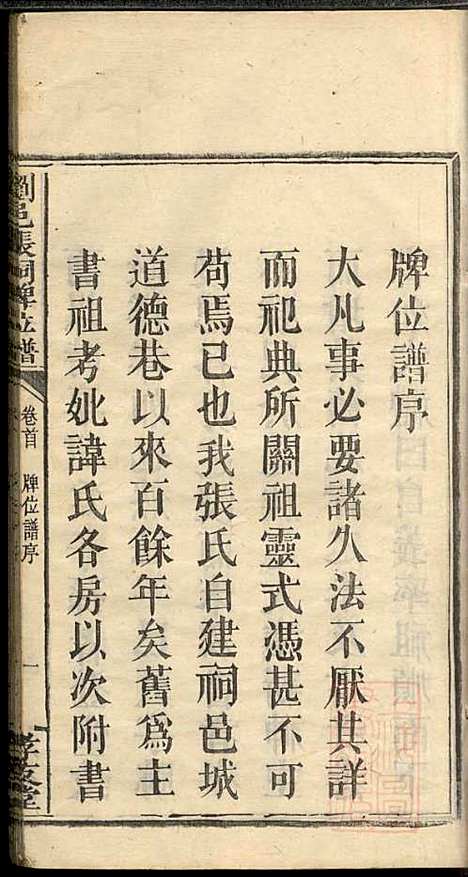 牌位譜序
大凡事必要諸久法不厭其詳
而祀典所關祖靈式憑甚不可
苟焉已也我張氏自建祠邑城
道德巷以來百餘年矣舊爲主
書祖考妣諱氏各房以次附書
瀏邑張祠牌位譜
卷首
牌位譜序
一
孝友堂